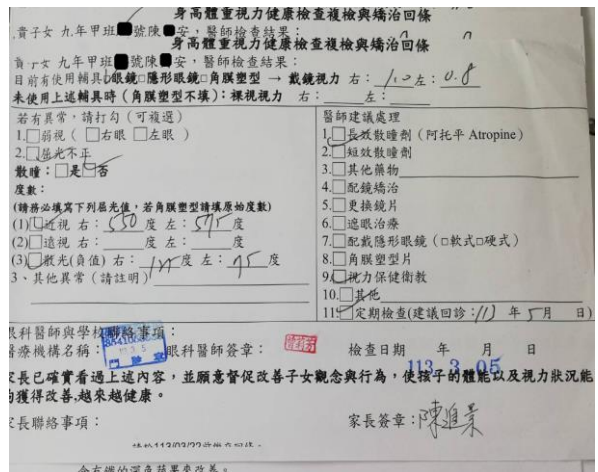 身高體重視力健康檢查複檢與矯治回條
貴子女 九年甲班 號陳 安，醫師檢查結果：
身高體重視力健康檢查複檢與矯治回條
貴子女 九年甲班 號陳 安，醫師檢查結果：
目前有使用輔具□眼鏡□隱形眼鏡□角膜塑型 → 戴鏡視力 右：1.0 左：0.8
未使用上述輔具時（角膜塑型不填）：裸視視力 右： 左：
若有異常，請打勾（可複選）
1.□弱視（□右眼 □左眼）
2.□屈光不正
散瞳：□是□否
度數：
(請務必填寫下列屈光值，若角膜塑型請填原始度數)
(1)□近視 右：550 度 左：575 度
(2)□遠視 右： 度 左： 度
(3)□散光(負值) 右：125 度 左：75 度
3、其他異常（請註明）
醫師建議處理
1.□長效散瞳劑（阿托平 Atropine）
2.□短效散瞳劑
3.□其他藥物
4.□配鏡矯治
5.□更換鏡片
6.□遮眼治療
7.□配戴隱形眼鏡（□軟式□硬式）
8.□角膜塑型片
9.□視力保健衛教
10.□其他
11.□定期檢查(建議回診：113 年 5 月 日)
眼科醫師與學校聯絡事項：
醫療機構名稱： 眼科醫師簽章： 檢查日期 年 月 日
113.3.05
家長已確實看過上述內容，並願意督促改善子女觀念與行為，使孩子的體能以及視力狀況能
夠獲得改善,越來越健康。
家長聯絡事項： 家長簽章：陳進業